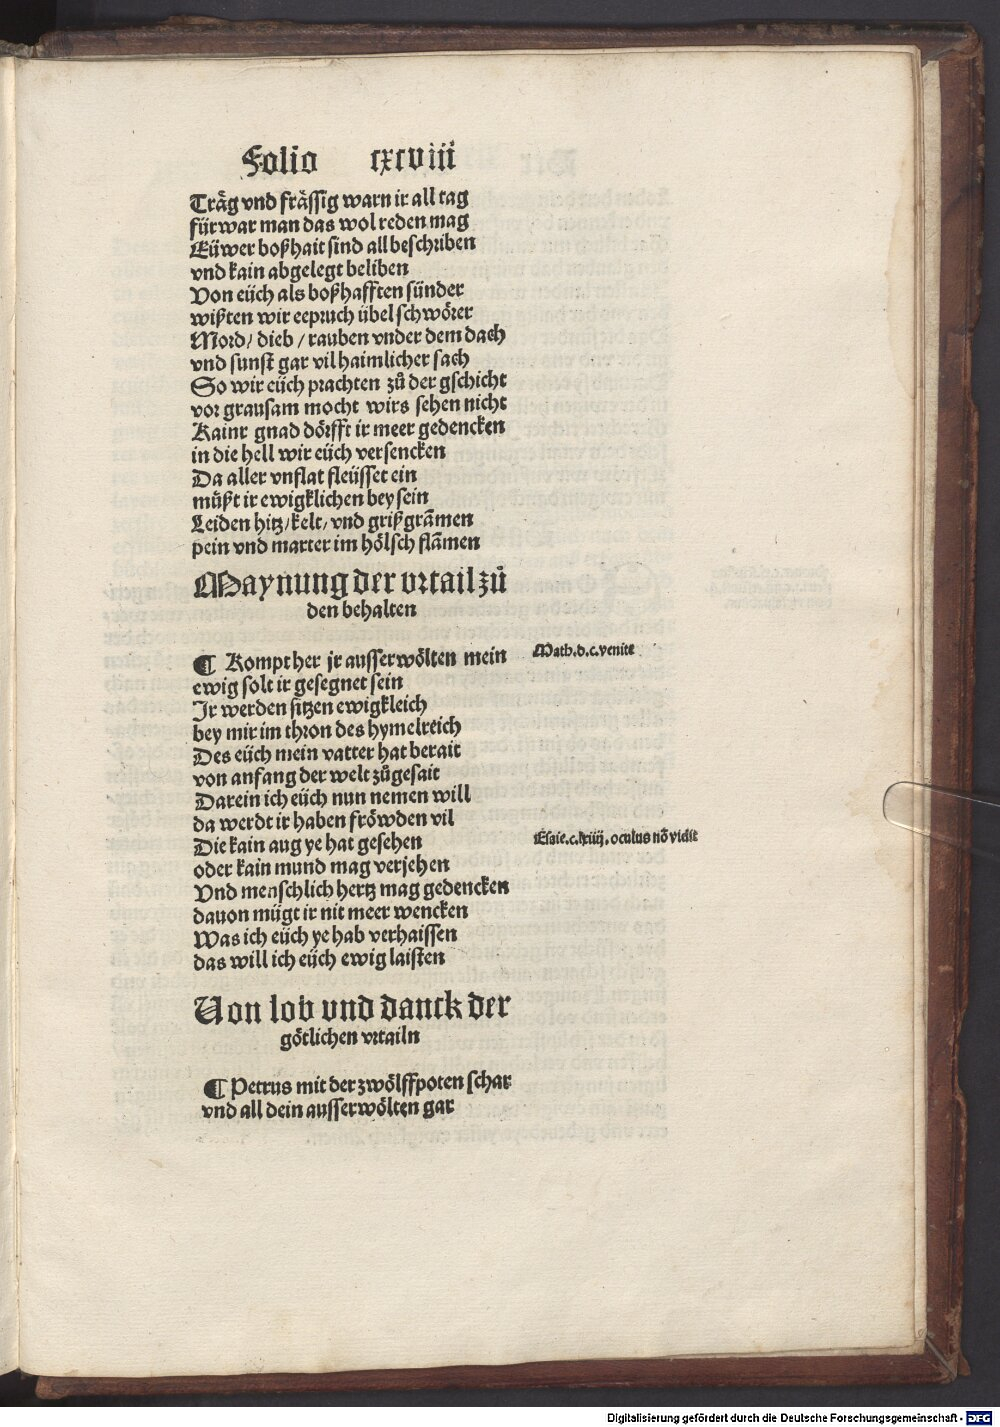 Folio cxcviii
Träg vnd frässig warn ir all tag
fürwar man das wol reden mag
Eüwer boßhait sind all beschriben
vnd kain abgelegt beliben
Von eüch als boßhafften sünder
wißten wir eepruch übel schwörer
Mord/ dieb/ rauben vnder dem dach
vnd sunst gar vil haimlicher sach
So wir eüch prachten zů der gschicht
vor grausam mocht wirs sehen nicht
Kainr gnad dörfft ir meer gedencken
in die hell wir eüch versencken
Da aller vnflat fleüsset ein
müßt ir ewigklichen bey sein
Leiden hitz/ kelt/ vnd grißgrāmen
pein vnd marter im hölsch flāmen
Maynung der vrtail zů
den behalten
¶ Kompt her jr ausserwölten mein
Math.v.c.venite
ewig solt ir gesegnet sein
Ir werden sitzen ewigkleich
bey mir im thron des hymelreich
Des eüch mein vatter hat berait
von anfang der welt zůgesait
Darein ich eüch nun nemen will
da werdt ir haben fröwden vil
Die kain aug ye hat gesehen
Esaie.c.lxiiij. oculus nō vidit
oder kain mund mag verjehen
Vnd menschlich hertz mag gedencken
dauon mügt ir nit meer wencken
Was ich eüch ye hab verhaissen
das will ich eüch ewig laisten
Von lob vnd danck der
götlichen vrtailn
¶ Petrus mit der zwölffpoten schar
vnd all dein ausserwölten gar
Digitalisierung gefördert durch die Deutsche Forschungsgemeinschaft - DFG